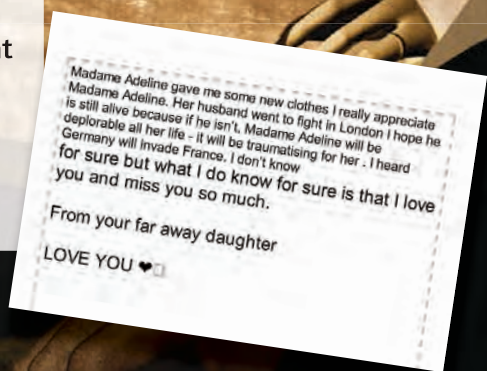 nt
Madame Adeline gave me some new clothes I really appreciate
Madame Adeline. Her husband went to fight in London I hope he
is still alive because if he isn't, Madame Adeline will be
deplorable all her life - it will be traumatising for her . I heard
Germany will invade France. I don't know
for sure but what I do know for sure is that I love
you and miss you so much.
From your far away daughter
LOVE YOU ❤